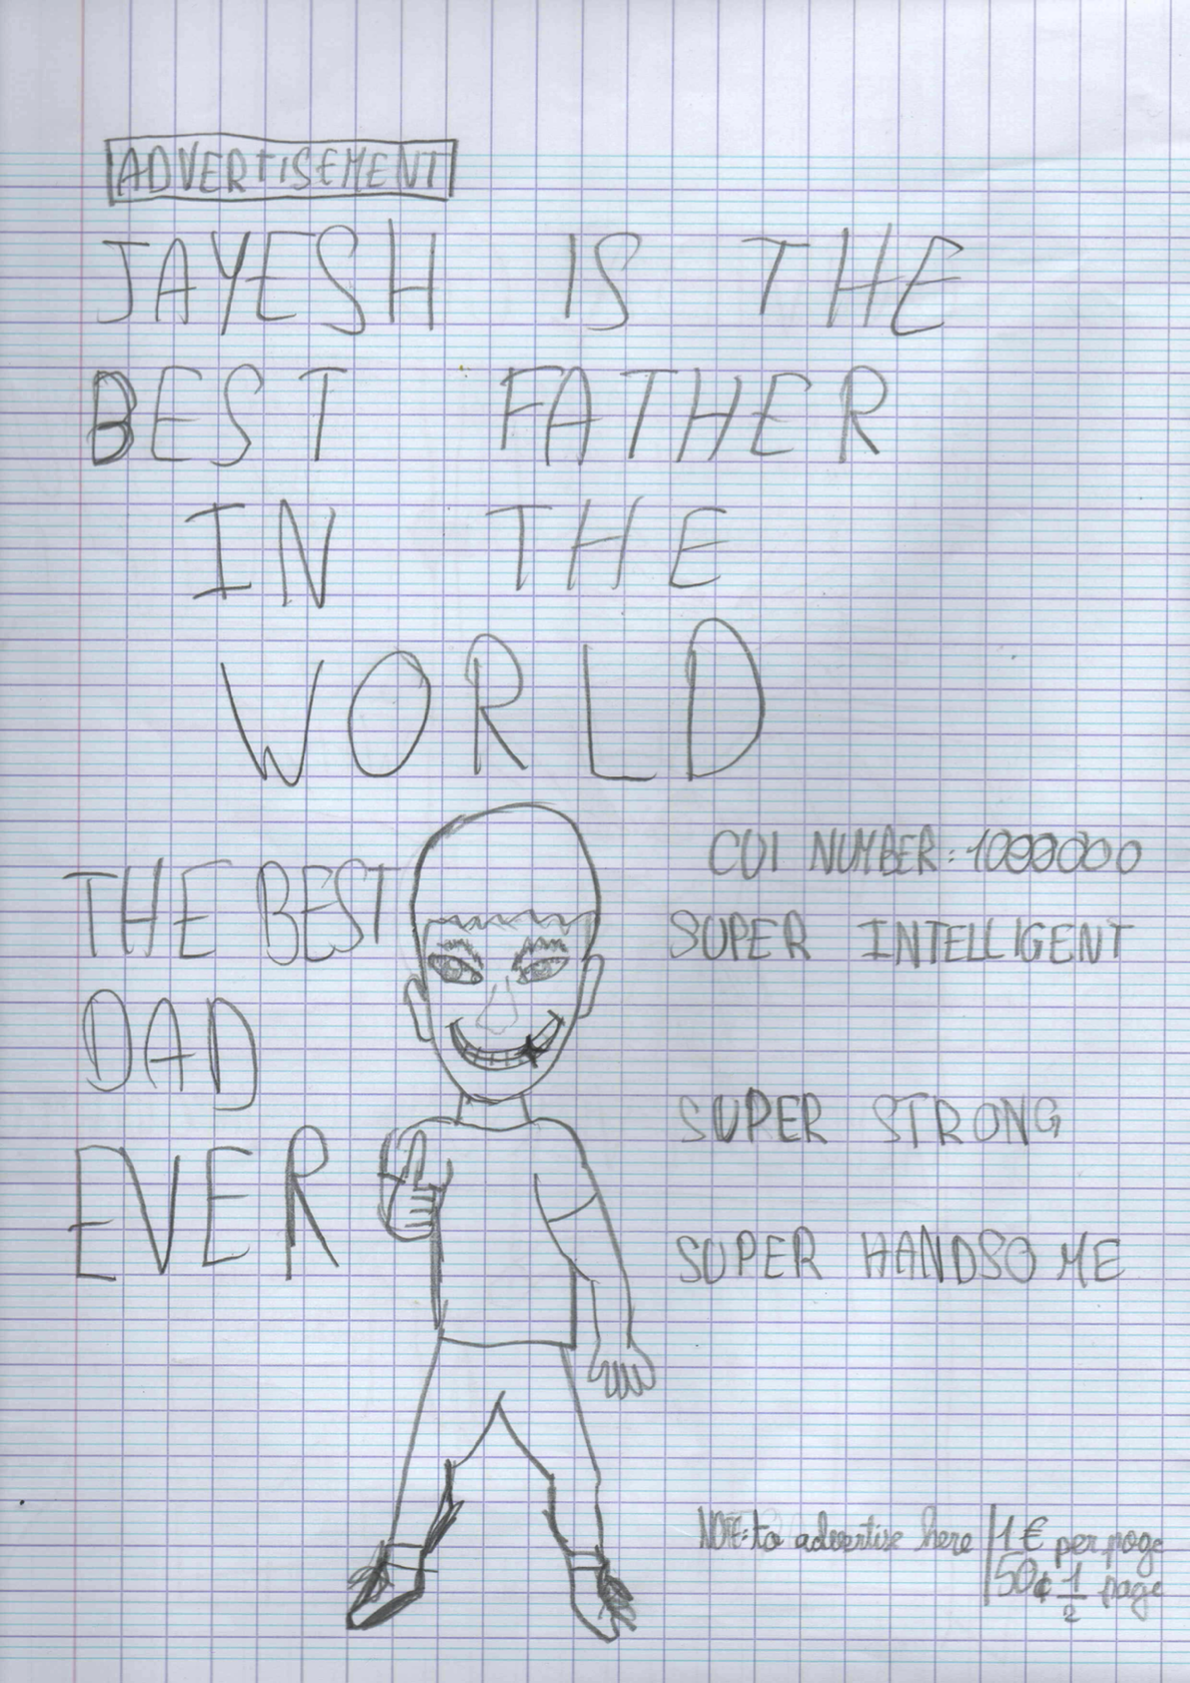 ADVERTISEMENT
JAYESH IS THE
BEST FATHER
IN THE
WORLD
THE BEST
DAD
EVER
CUI NUMBER: 1000000
SUPER INTELLIGENT
SUPER STRONG
SUPER HANDSOME
NOTE: to advertise here 1 € per page
50¢ 1/2 page